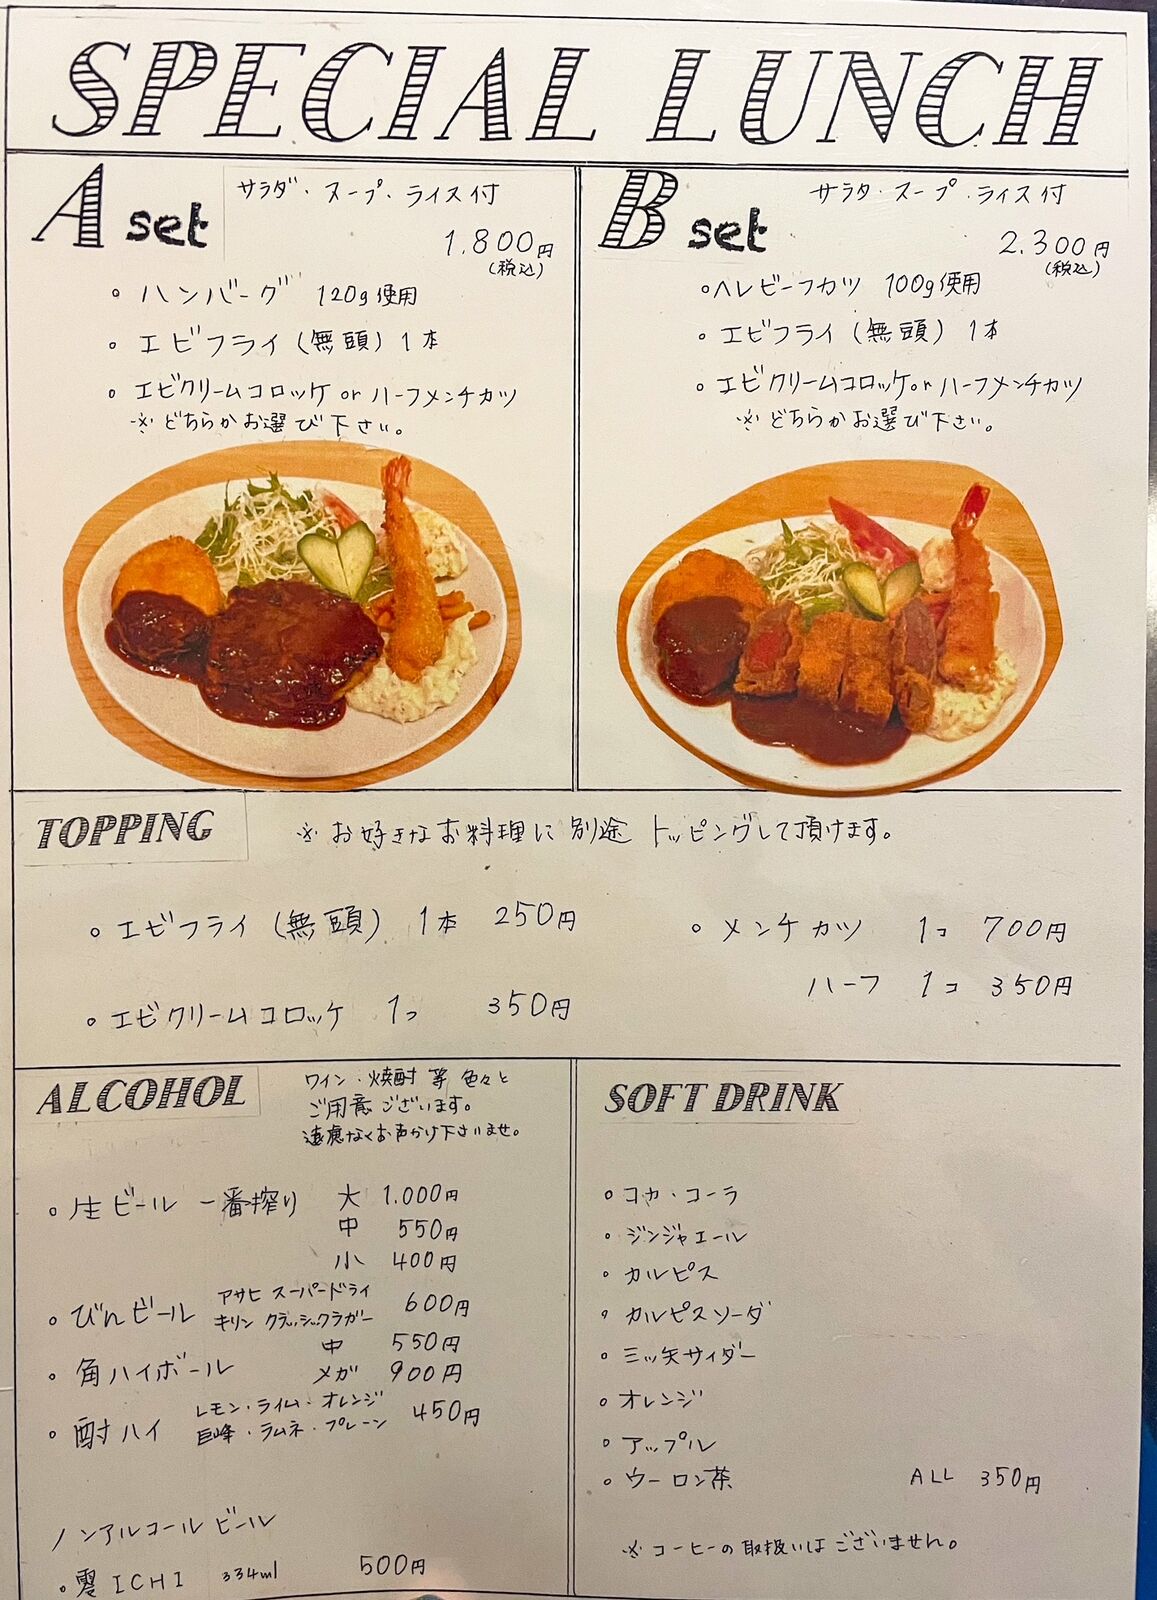 SPECIAL LUNCH
A set
サラダ・スープ・ライス付
1.800円
(税込)
。ハンバーグ 120g使用
。エビフライ(無頭) 1本
。エビクリームコロッケ or ハーフメンチカツ
※どちらかお選び下さい。
B set
サラダ・スープ・ライス付
2.300円
(税込)
。ヘレビーフカツ 100g使用
。エビフライ(無頭) 1本
。エビクリームコロッケ or ハーフメンチカツ
※どちらかお選び下さい。
TOPPING
※お好きなお料理に別途トッピングして頂けます。
。エビフライ(無頭) 1本 250円
。エビクリームコロッケ 1コ 350円
。メンチカツ 1コ 700円
ハーフ 1コ 350円
ALCOHOL
ワイン・焼酎 等 色々と
ご用意ございます。
遠慮なくお声かけ下さいませ。
。生ビール 一番搾り 大 1.000円
中 550円
小 400円
。びんビール アサヒ スーパードライ
キリン クラッシックラガー 600円
。角ハイボール 中 550円
メガ 900円
。酎ハイ レモン・ライム・オレンジ
巨峰・ラムネ・プレーン 450円
ノンアルコールビール
。零ICHI 334ml 500円
SOFT DRINK
。コカ・コーラ
。ジンジャエール
。カルピス
。カルピスソーダ
。三ッ矢サイダー
。オレンジ
。アップル
。ウーロン茶 ALL 350円
※コーヒーの取扱いはございません。